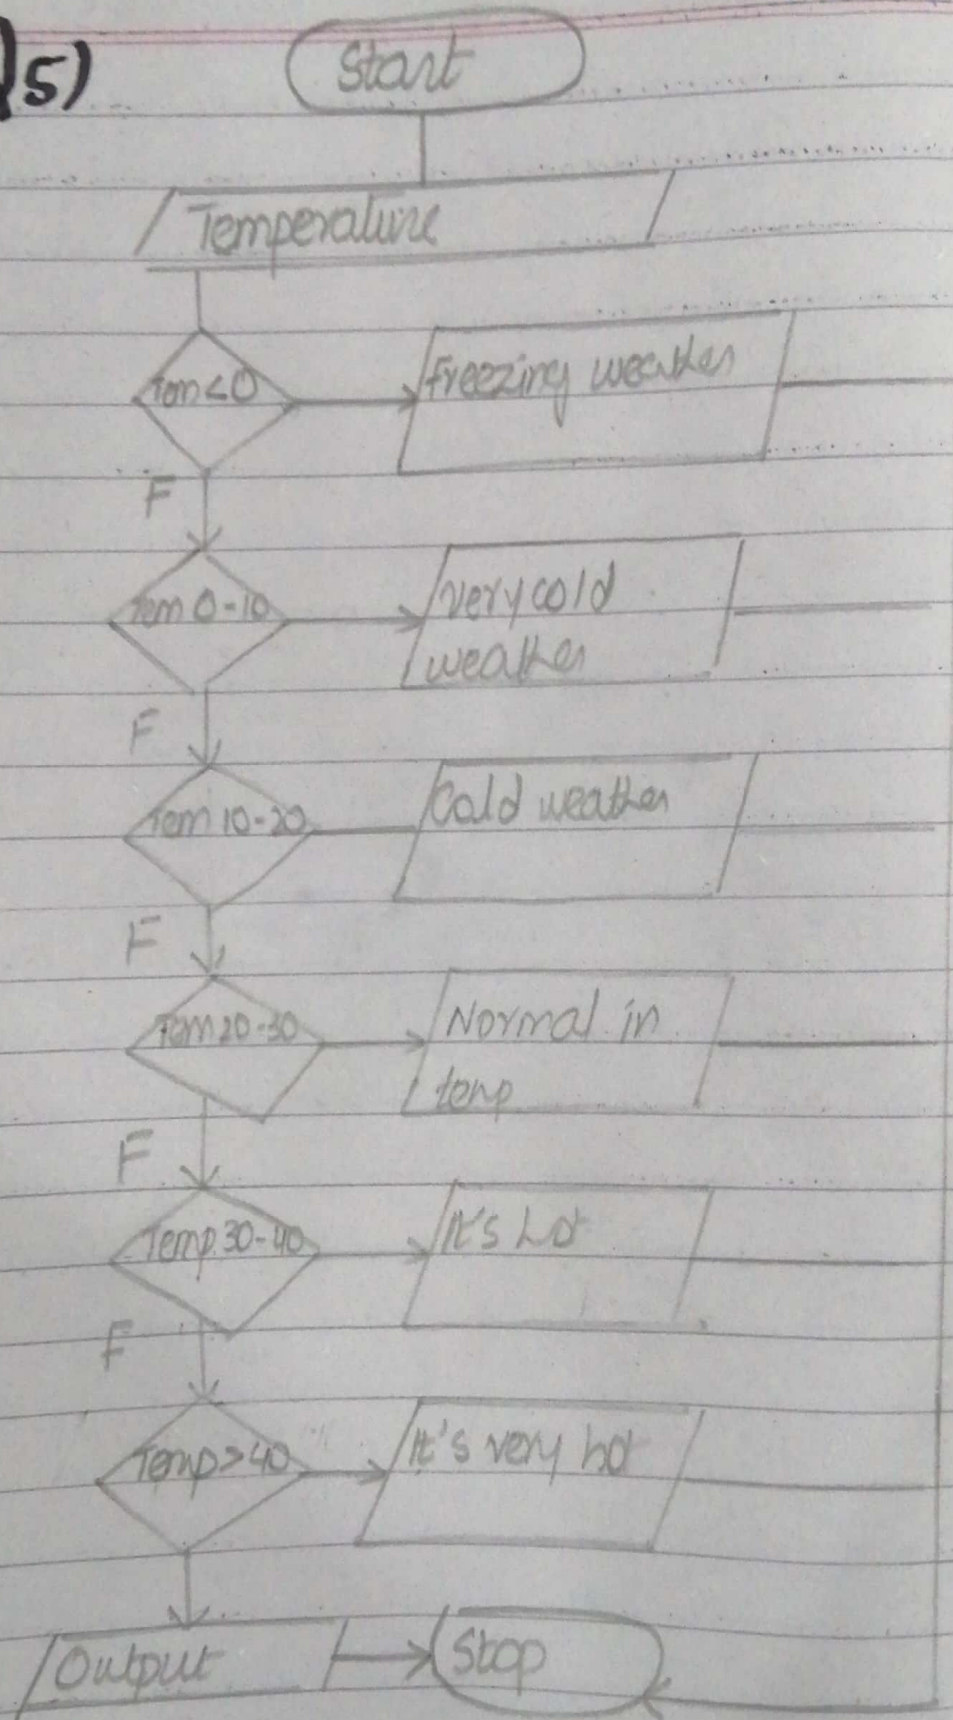 Q5)
Start
Temperature
Tem<0
Freezing weather
F
Tem 0-10
very cold
weather
F
Tem 10-20
Cold weather
F
Tem 20-30
Normal in
temp
F
Temp 30-40
It's hot
F
Temp>40
It's very hot
Output
Stop